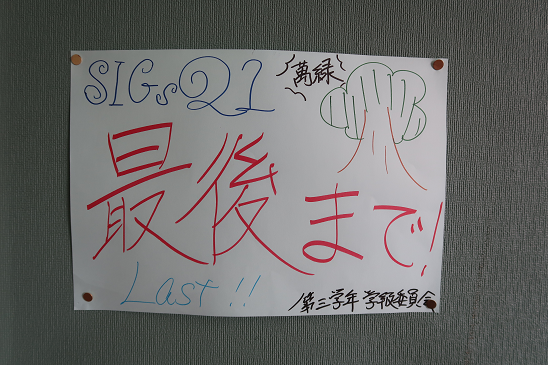 SIGs21
萬緑
最後まで!
Last!!
第三学年 学級委員会